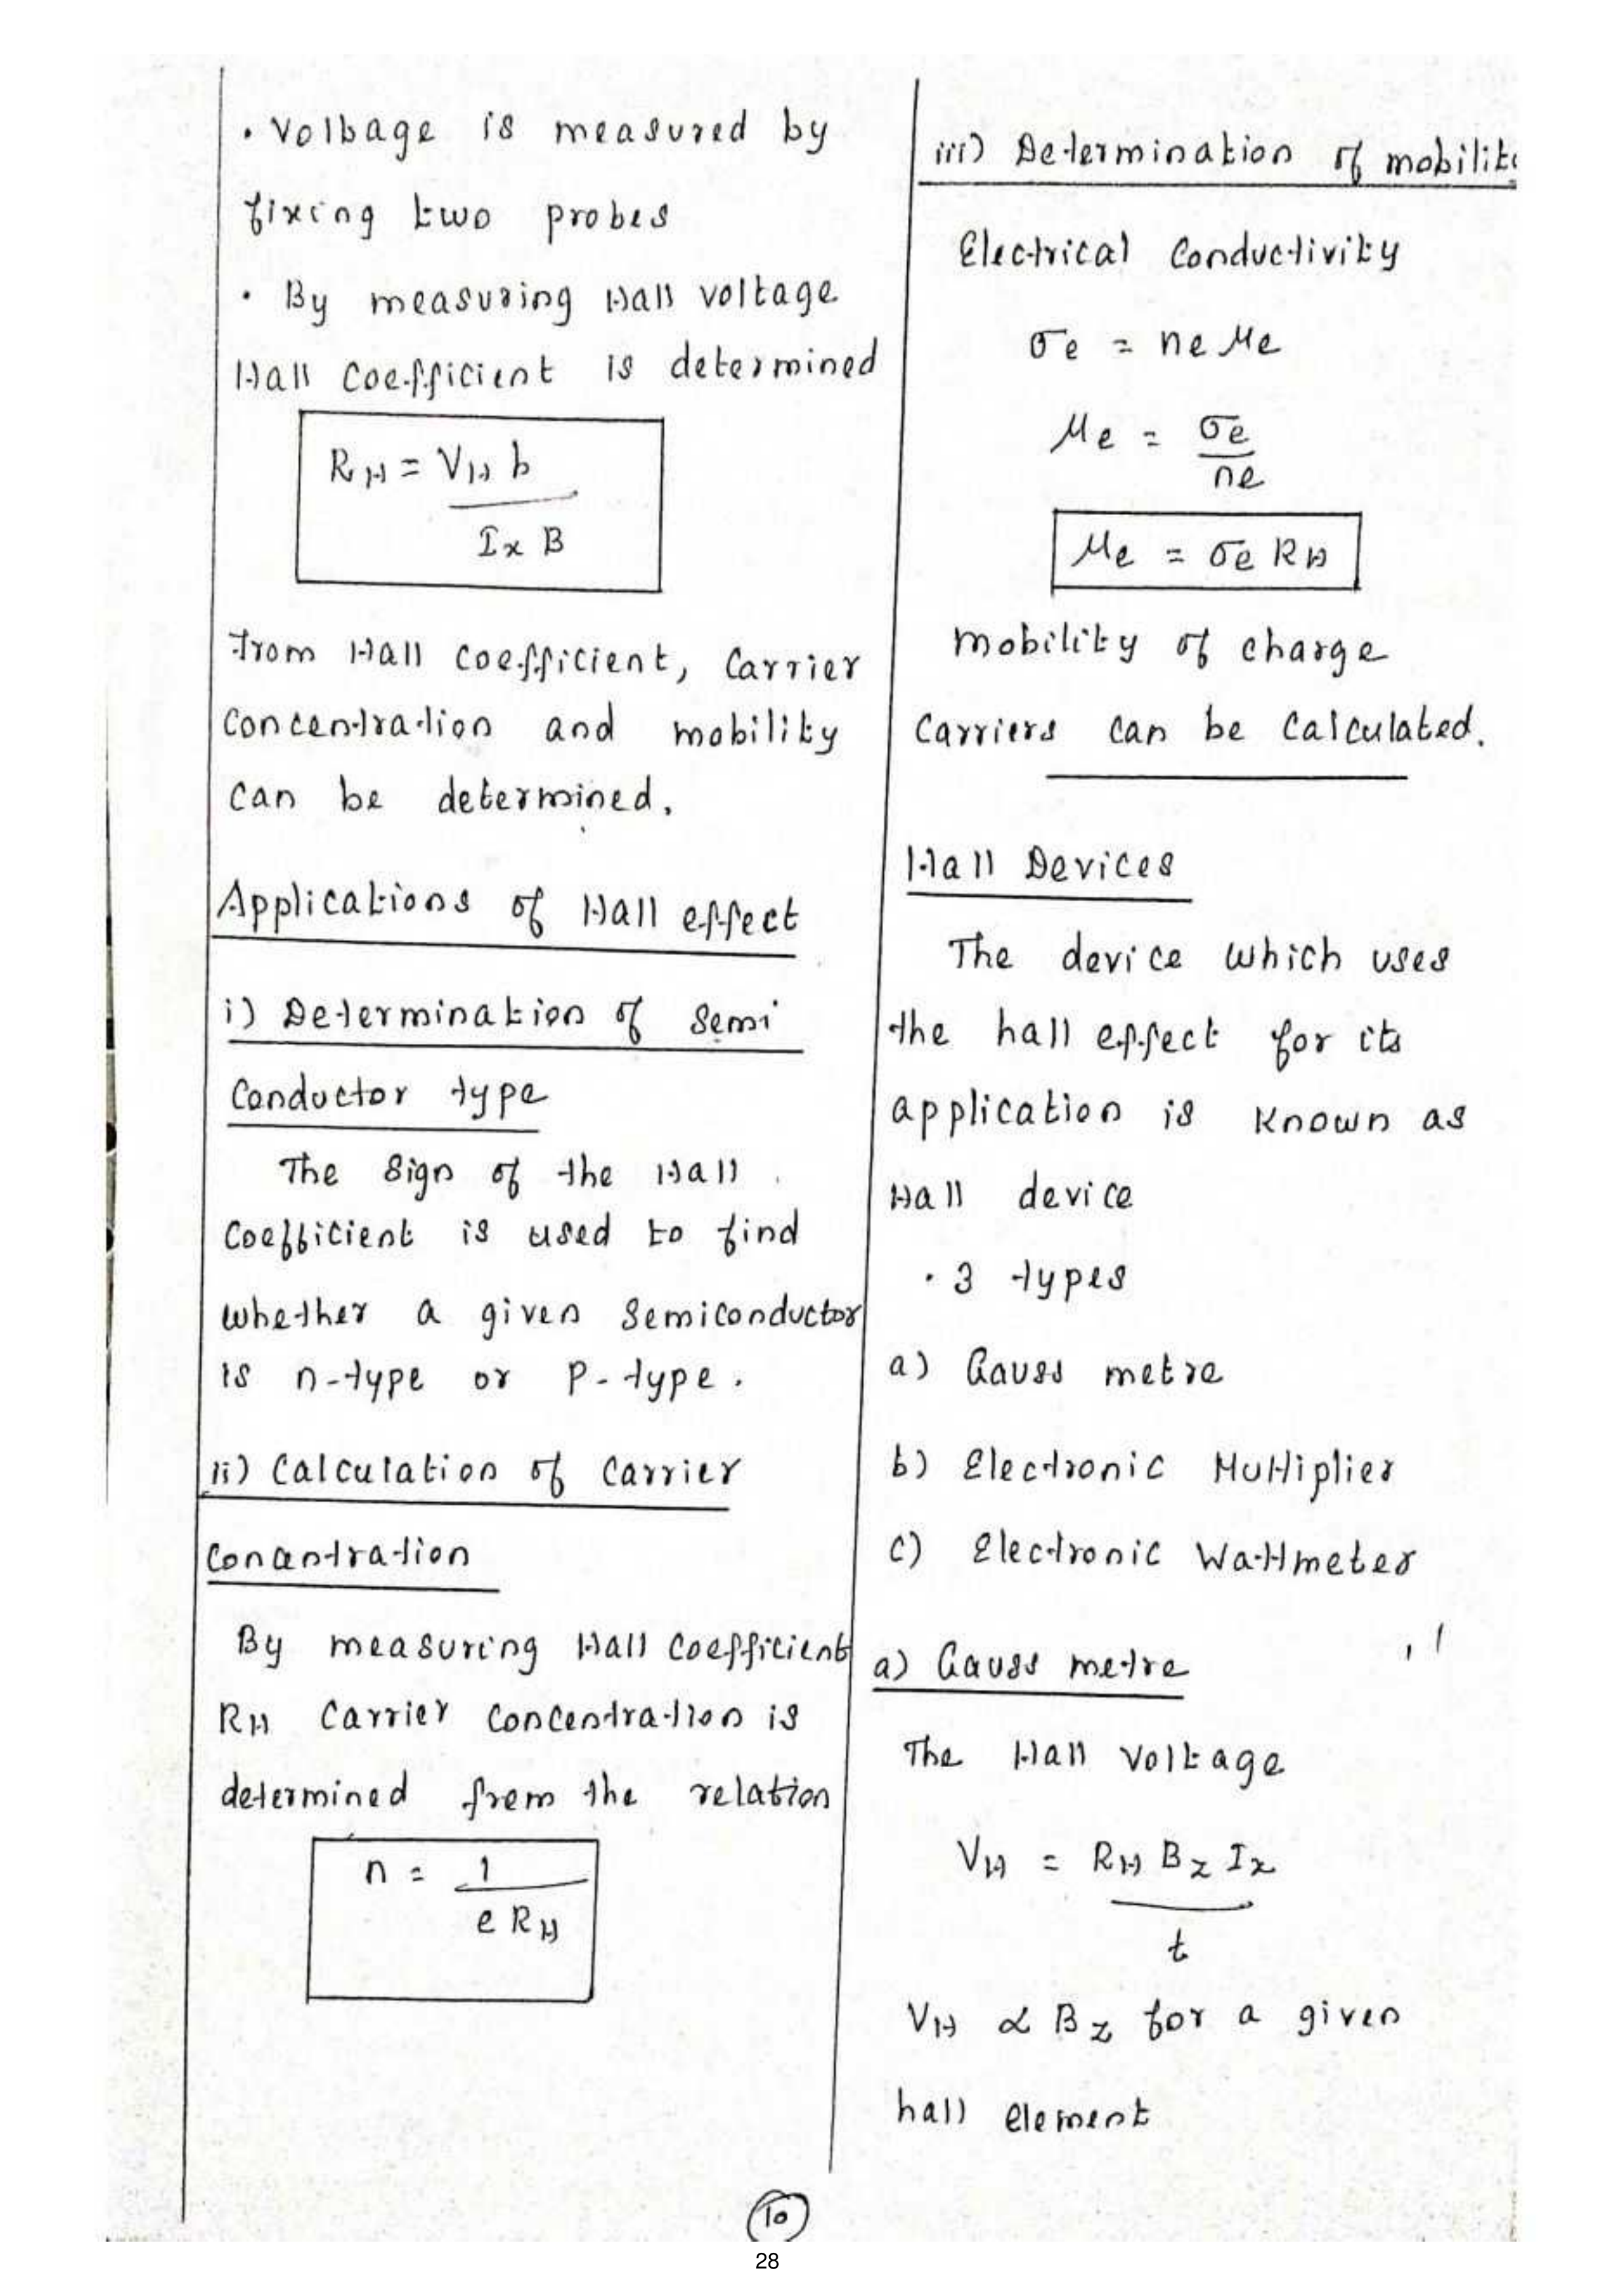 • Voltage is measured by
fixing two probes
• By measuring Hall voltage
Hall Coefficient is determined
R_H = V_H b
I_x B
From Hall coefficient, Carrier
Concentration and mobility
can be determined.
Applications of Hall effect
i) Determination of Semi
Conductor type
The Sign of the Hall
Coefficient is used to find
whether a given Semiconductor
is n-type or P-type.
ii) Calculation of Carrier
Concentration
By measuring Hall Coefficient
R_H Carrier Concentration is
determined from the relation
n = 1
e R_H
iii) Determination of mobility
Electrical Conductivity
σe = neμe
μe = σe
ne
μe = σe R_H
Mobility of charge
Carriers can be Calculated.
Hall Devices
The device which uses
the hall effect for its
application is Known as
Hall device
• 3 types
a) Gauss metre
b) Electronic Multiplier
c) Electronic Wattmeter
a) Gauss metre
The Hall Voltage
V_H = R_H B_z I_x
t
V_H α B_z for a given
hall element
10
28